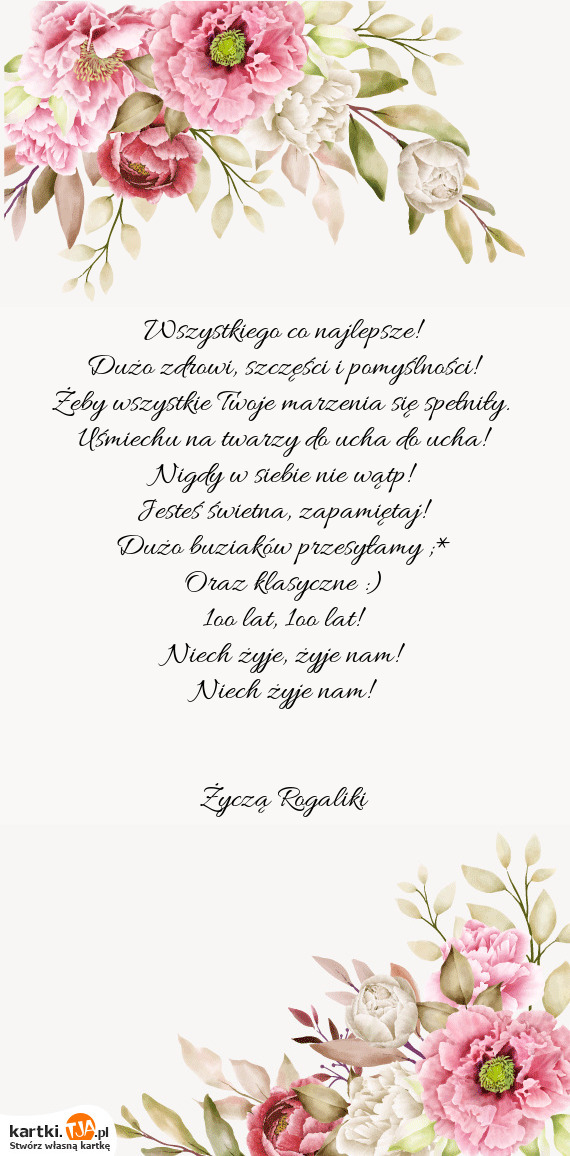 Wszystkiego co najlepsze!
Dużo zdrowi, szczęści i pomyślności!
Żeby wszystkie Twoje marzenia się spełniły.
Uśmiechu na twarzy do ucha do ucha!
Nigdy w siebie nie wątp!
Jesteś świetna, zapamiętaj!
Dużo buziaków przesyłamy ;*
Oraz klasyczne :)
100 lat, 100 lat!
Niech żyje, żyje nam!
Niech żyje nam!
Życzą Rogaliki
kartki.TJA.pl
Stwórz własną kartkę